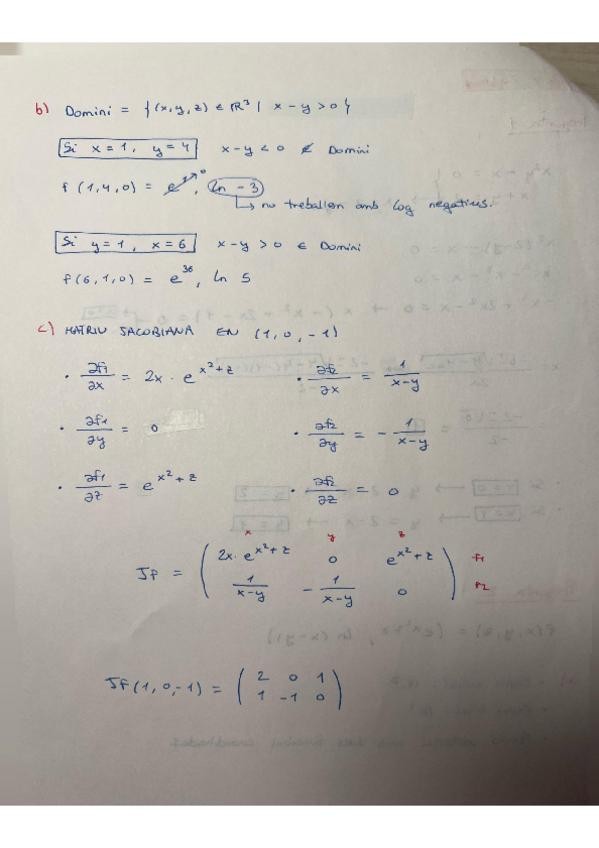 b) Domini = { (x,y,z) ∈ ℝ³ | x - y > 0 }
Si x = 1, y = 4    x - y < 0 ∉ Domini
f (1,4,0) = e⁰, ln -3
↳ no treballem amb log negatius.
Si y = 1, x = 6    x - y > 0 ∈ Domini
f(6,1,0) = e³⁶, ln 5
c) MATRIU JACOBIANA EN (1, 0, -1)
· ∂f1/∂x = 2x · e^(x²+z)    · ∂f2/∂x = 1/(x-y)
· ∂f1/∂y = 0    · ∂f2/∂y = - 1/(x-y)
· ∂f1/∂z = e^(x²+z)    · ∂f2/∂z = 0
x    y    z
Jf = ( 2x · e^(x²+z)    0    e^(x²+z) ) f1
( 1/(x-y)    - 1/(x-y)    0 ) f2
Jf (1, 0, -1) = ( 2 0 1
1 -1 0 )